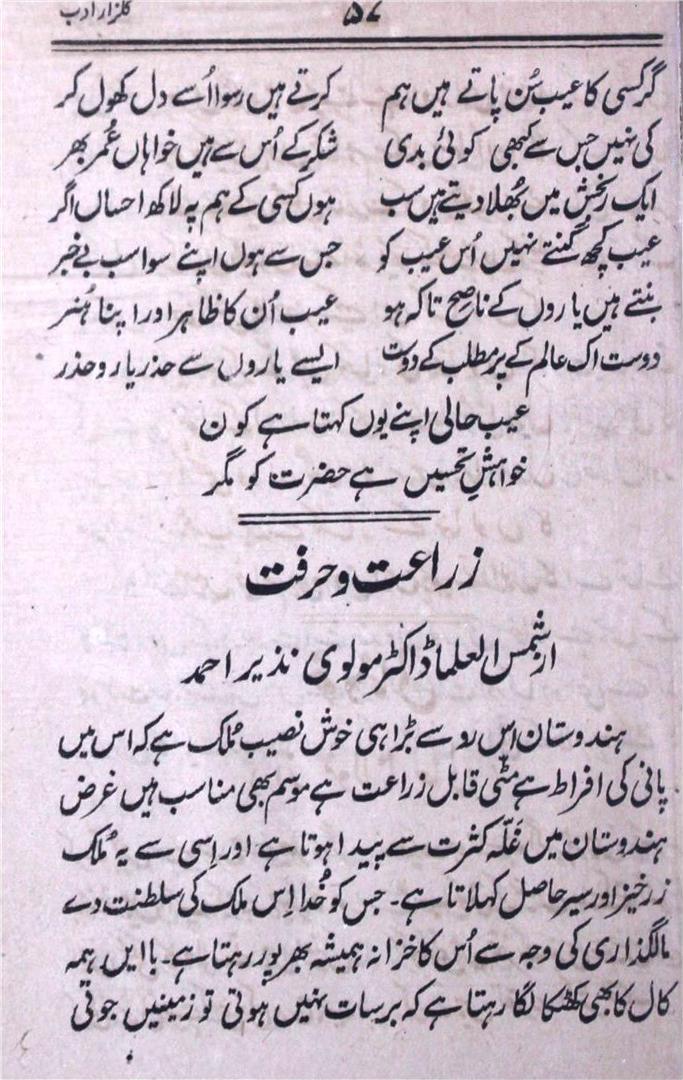 گلزار ادب
۵۷
گر کسی کا عیب سُن پاتے ہیں ہم کرتے ہیں رسوا اُسے دل کھول کر
کی نہیں جس سے کبھی کوئی بدی شکر کے اُس سے ہیں خواہاں عُمر بھر
ایک رنجش میں بُھلا دیتے ہیں سب ہوں کسی کے ہم پہ لاکھ احساں اگر
عیب کچھ گنتے نہیں اُس عیب کو جس سے ہوں اپنے سوا سب بے خبر
بنتے ہیں یاروں کے ناصح تاکہ ہو عیب اُن کا ظاہر اور اپنا ہُنر
دوست اک عالم کے پر مطلب کے دوست ایسے یاروں سے حذر یارو حذر
عیب حالی اپنے یوں کہتا ہے کون
خواہشِ تحسیں ہے حضرت کو مگر
زراعت و حرفت
از شمس العلما ڈاکٹر مولوی نذیر احمد
ہندوستان اس رو سے بڑا ہی خوش نصیب مُلک ہے کہ اس میں
پانی کی افراط ہے مٹّی قابل زراعت ہے موسم بھی مناسب ہیں غرض
ہندوستان میں غلّہ کثرت سے پیدا ہوتا ہے اور اِسی سے یہ مُلک
زرخیز اور سیر حاصل کہلاتا ہے۔ جس کو خُدا اِس ملک کی سلطنت دے
مالگذاری کی وجہ سے اُس کا خزانہ ہمیشہ بھرپور رہتا ہے۔ باایں ہمہ
کال کا بھی کھٹکا لگا رہتا ہے کہ برسات نہیں ہوتی تو زمینیں جوتی